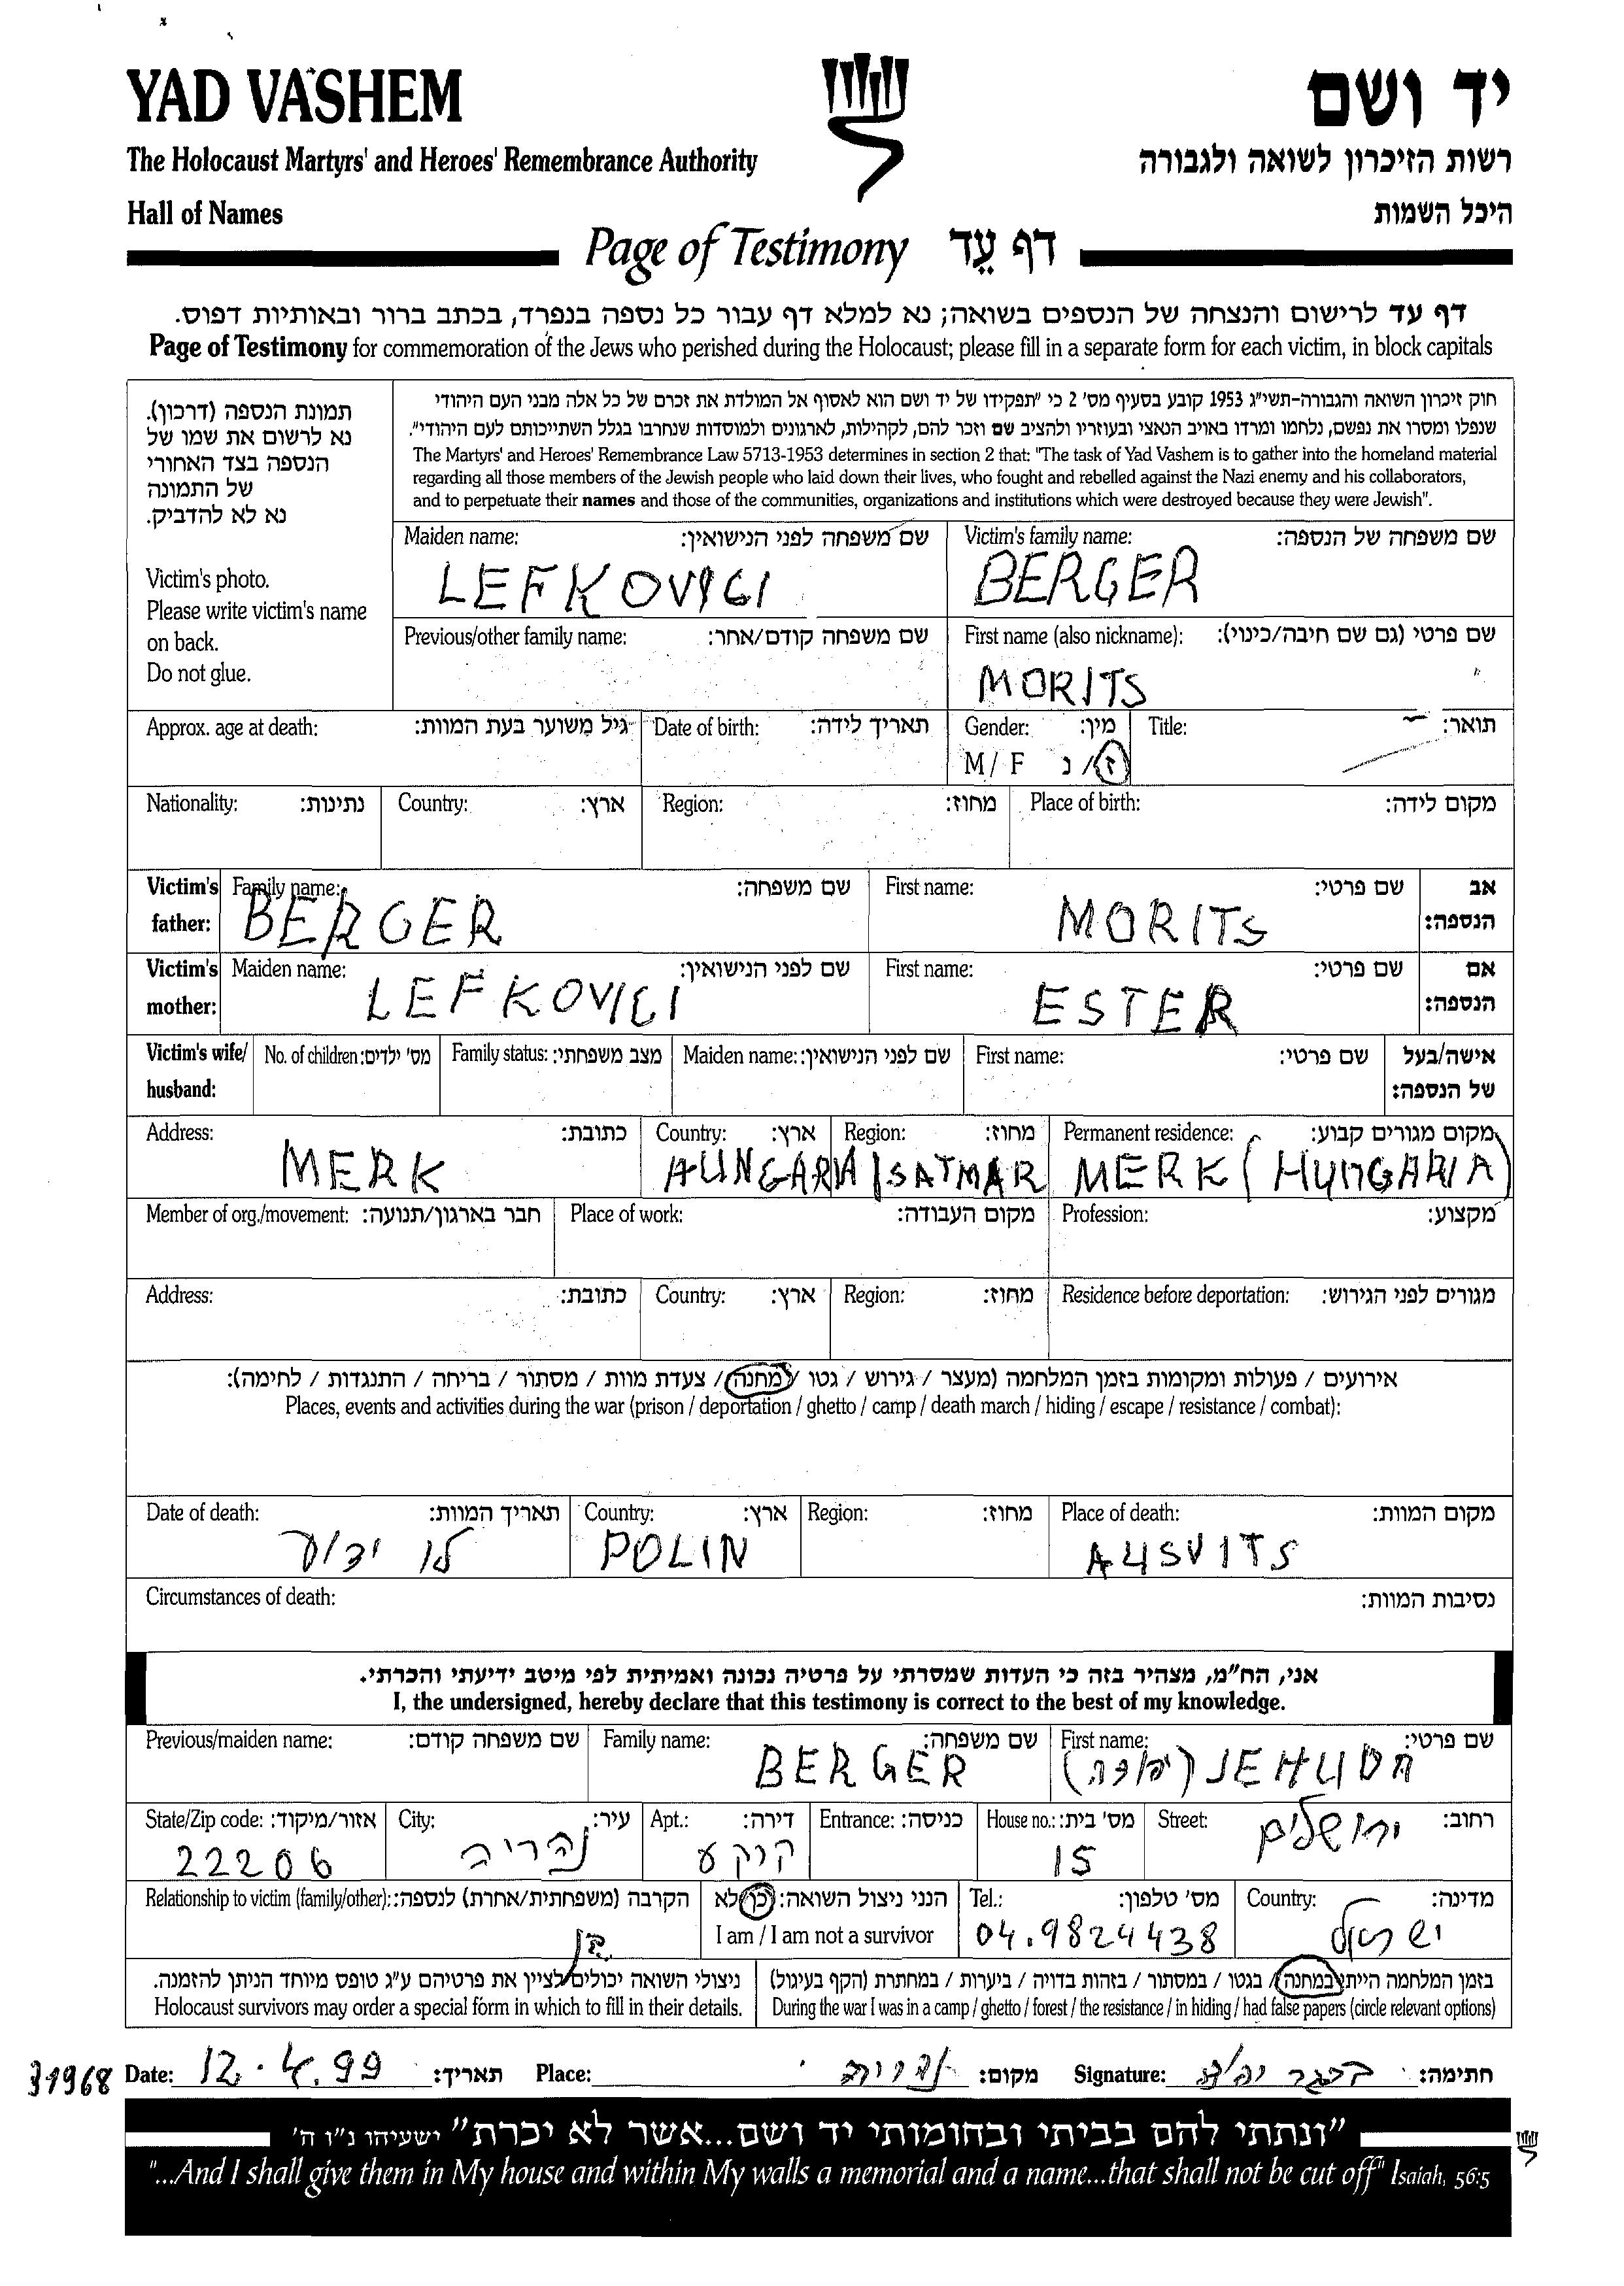 YAD VASHEM
יד ושם
The Holocaust Martyrs' and Heroes' Remembrance Authority
רשות הזיכרון לשואה ולגבורה
Hall of Names
היכל השמות
Page of Testimony דף עֵד
דף עד לרישום והנצחה של הנספים בשואה; נא למלא דף עבור כל נספה בנפרד, בכתב ברור ובאותיות דפוס.
Page of Testimony for commemoration of the Jews who perished during the Holocaust; please fill in a separate form for each victim, in block capitals
תמונת הנספה (דרכון).
נא לרשום את שמו של
הנספה בצד האחורי
של התמונה
נא לא להדביק.
Victim's photo.
Please write victim's name
on back.
Do not glue.
חוק זיכרון השואה והגבורה-תשי"ג 1953 קובע בסעיף מס' 2 כי "תפקידו של יד ושם הוא לאסוף אל המולדת את זכרם של כל אלה מבני העם היהודי
שנפלו ומסרו את נפשם, נלחמו ומרדו באויב הנאצי ובעוזריו ולהציב שם וזכר להם, לקהילות, לארגונים ולמוסדות שנחרבו בגלל השתייכותם לעם היהודי".
The Martyrs' and Heroes' Remembrance Law 5713-1953 determines in section 2 that: "The task of Yad Vashem is to gather into the homeland material
regarding all those members of the Jewish people who laid down their lives, who fought and rebelled against the Nazi enemy and his collaborators,
and to perpetuate their names and those of the communities, organizations and institutions which were destroyed because they were Jewish".
Maiden name: שם משפחה לפני הנישואין: Victim's family name: שם משפחה של הנספה:
LEFKOVICI BERGER
Previous/other family name: שם משפחה קודם/אחר: First name (also nickname): שם פרטי (גם שם חיבה/כינוי):
MORITS
Approx. age at death: גיל משוער בעת המוות: Date of birth: תאריך לידה: Gender: מין: Title: תואר:
M / F ז / נ
Nationality: נתינות: Country: ארץ: Region: מחוז: Place of birth: מקום לידה:
Victim's father: Family name: שם משפחה: First name: שם פרטי: אב הנספה:
BERGER MORITS
Victim's mother: Maiden name: שם לפני הנישואין: First name: שם פרטי: אם הנספה:
LEFKOVICI ESTER
Victim's wife/ husband: No. of children: מס' ילדים: Family status: מצב משפחתי: Maiden name: שם לפני הנישואין: First name: שם פרטי: אישה/בעל של הנספה:
Address: כתובת: Country: ארץ: Region: מחוז: Permanent residence: מקום מגורים קבוע:
MERK HUNGARIA SATMAR MERK (HUNGARIA)
Member of org./movement: חבר בארגון/תנועה: Place of work: מקום העבודה: Profession: מקצוע:
Address: כתובת: Country: ארץ: Region: מחוז: Residence before deportation: מגורים לפני הגירוש:
אירועים / פעולות ומקומות בזמן המלחמה (מעצר / גירוש / גטו / מחנה / צעדת מוות / מסתור / בריחה / התנגדות / לחימה):
Places, events and activities during the war (prison / deportation / ghetto / camp / death march / hiding / escape / resistance / combat):
Date of death: תאריך המוות: Country: ארץ: Region: מחוז: Place of death: מקום המוות:
לו ידוע POLIN AUSVITS
Circumstances of death: נסיבות המוות:
אני, הח"מ, מצהיר בזה כי העדות שמסרתי על פרטיה נכונה ואמיתית לפי מיטב ידיעתי והכרתי.
I, the undersigned, hereby declare that this testimony is correct to the best of my knowledge.
Previous/maiden name: שם משפחה קודם: Family name: שם משפחה: First name: שם פרטי:
BERGER JEHUDA (יהודה)
State/Zip code: אזור/מיקוד: City: עיר: Apt.: דירה: Entrance: כניסה: House no.: מס' בית: Street: רחוב:
22206 נהריה קרקע 15 ירושלים
Relationship to victim (family/other): הקרבה (משפחתית/אחרת) לנספה: הנני ניצול השואה: כן לא Tel.: מס' טלפון: Country: מדינה:
בן I am / I am not a survivor 04.9824438 ישראל
ניצולי השואה יכולים לציין את פרטיהם ע"ג טופס מיוחד הניתן להזמנה.
Holocaust survivors may order a special form in which to fill in their details.
בזמן המלחמה הייתי במחנה / בגטו / במסתור / בזהות בדויה / ביערות / במחתרת (הקף בעיגול)
During the war I was in a camp / ghetto / forest / the resistance / in hiding / had false papers (circle relevant options)
31968 Date: 12.4.99 תאריך: Place: נהריה מקום: Signature: ברגר יהודה חתימה:
"ונתתי להם בביתי ובחומותי יד ושם...אשר לא יכרת" ישעיהו נ"ו ה'
"...And I shall give them in My house and within My walls a memorial and a name...that shall not be cut off" Isaiah, 56:5